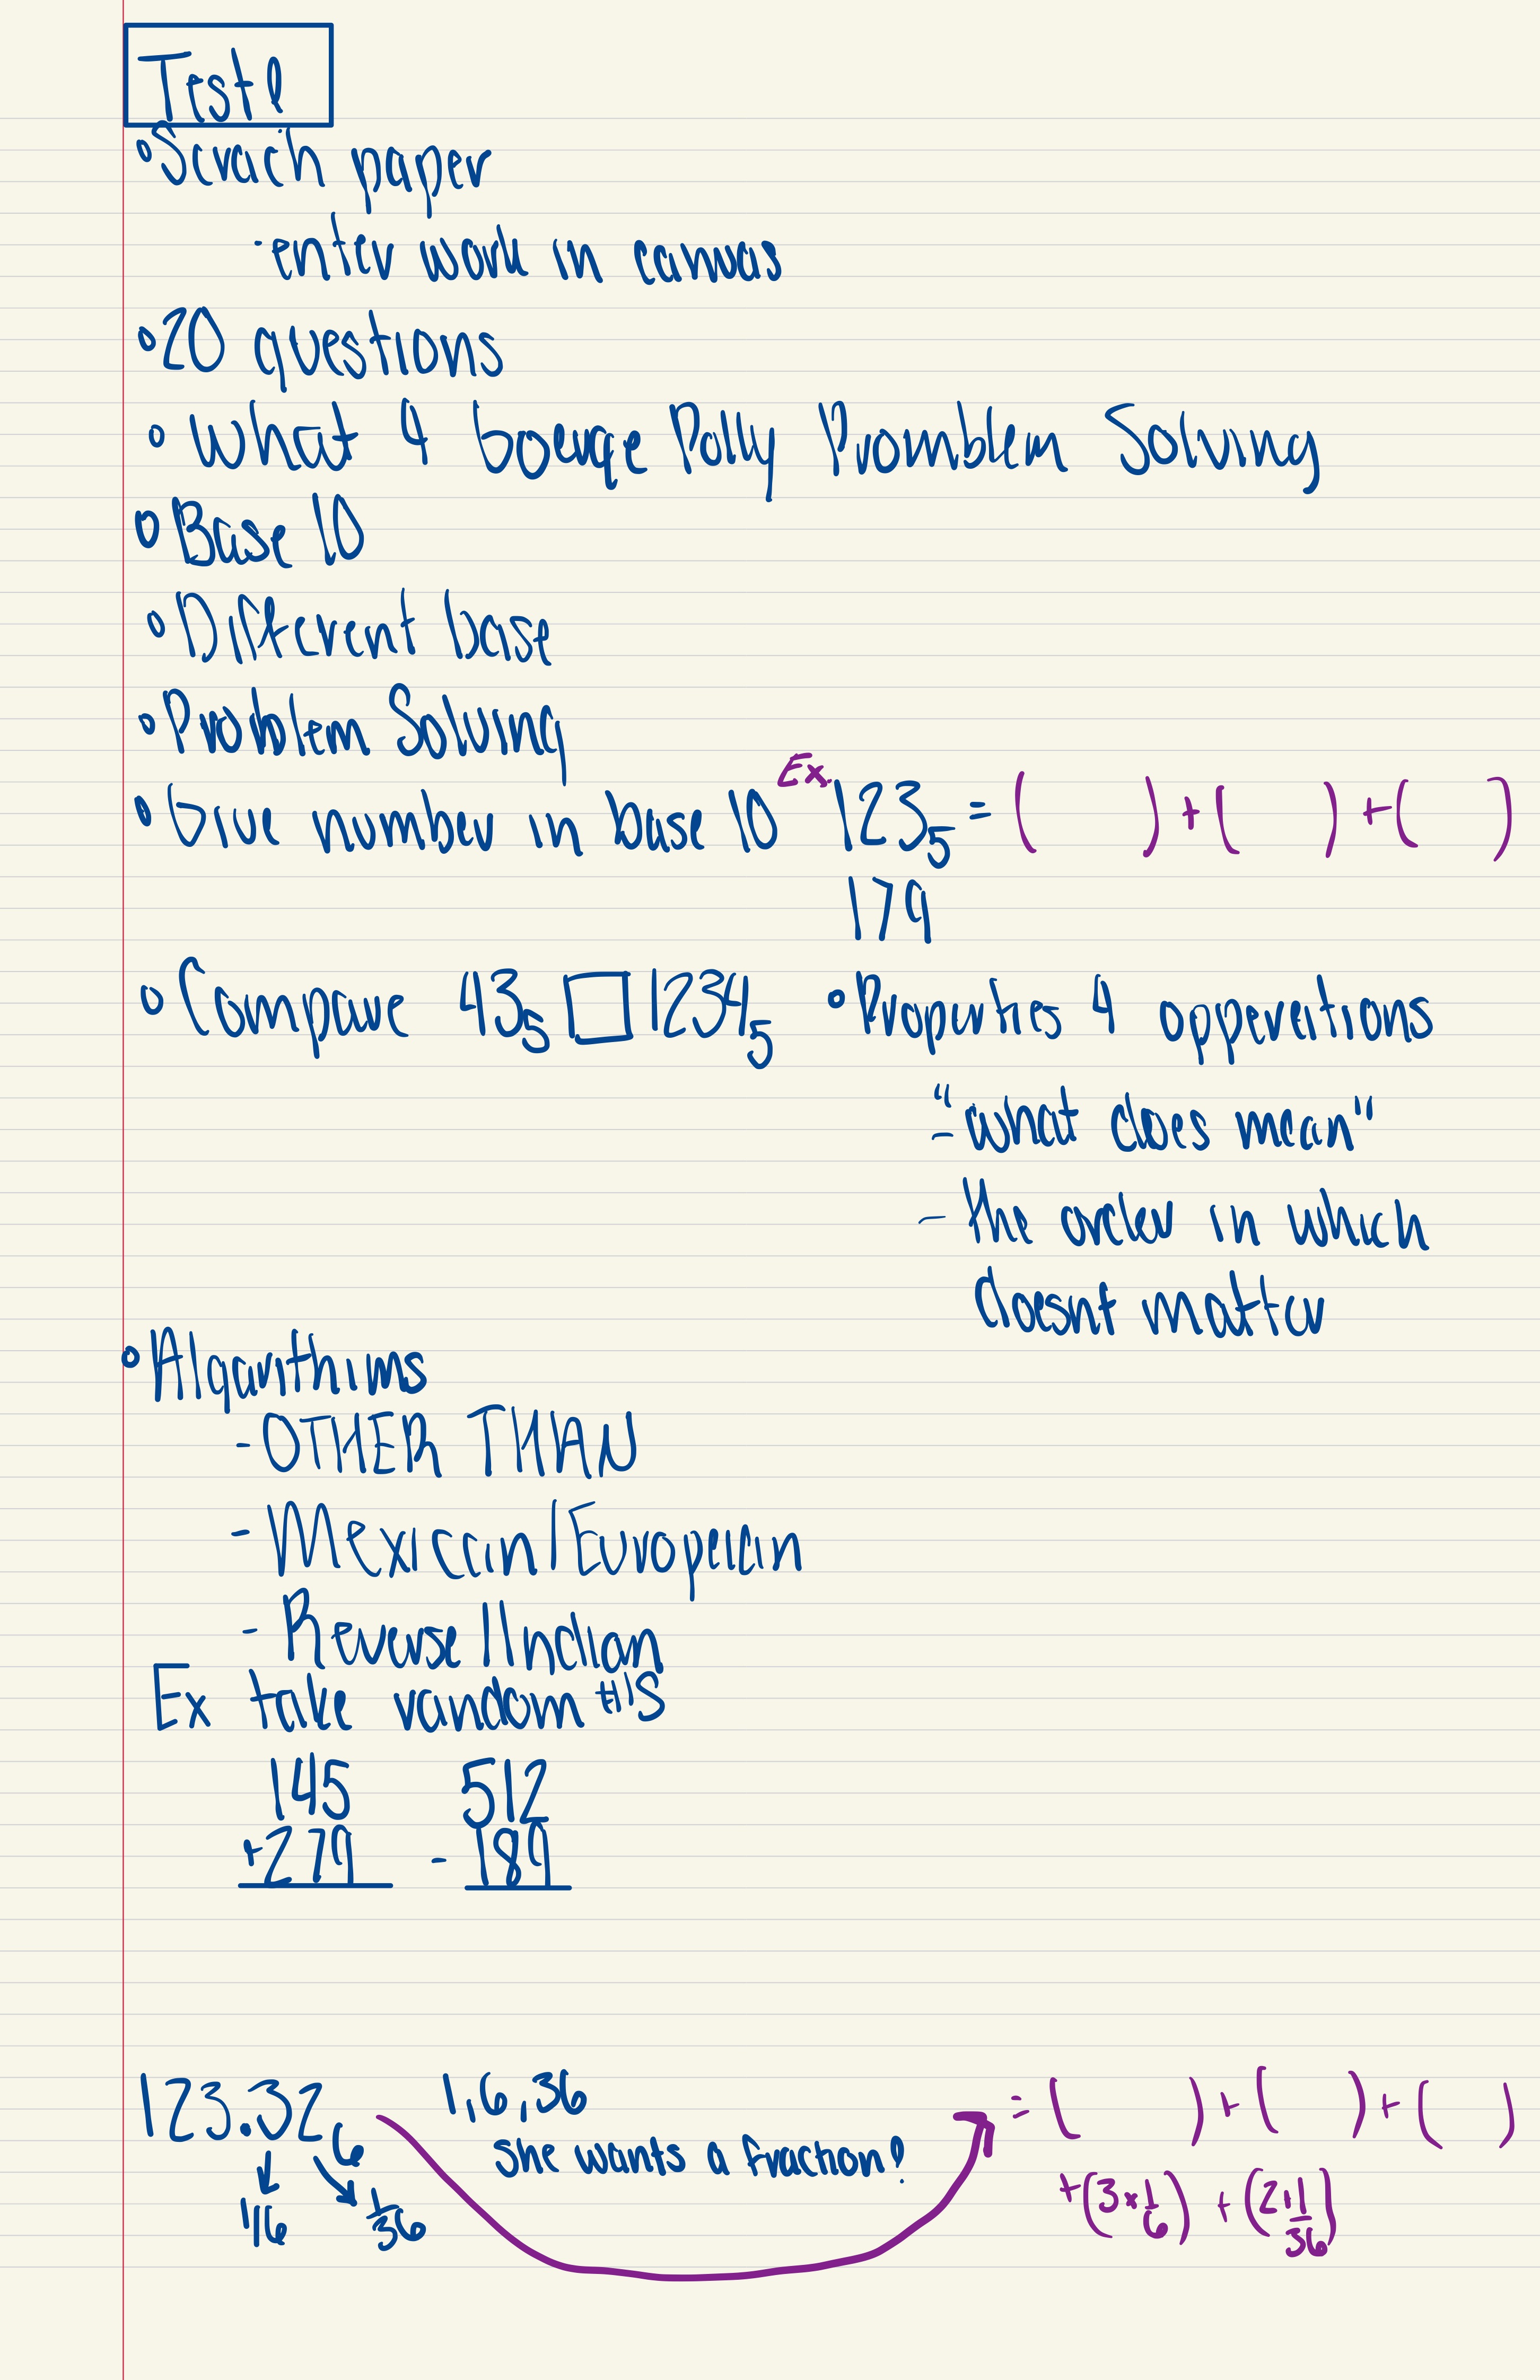 Test!
°Scrach paper
-enter work in canvas
°20 questions
° What 4 George Polly Promblem Solving
°Base 10
°Different base
°Problem Solving
°Give number in base 10 Ex. 123₅ = ( ) + ( ) + ( )
179
°Compare 43₅ □ 1234₅ °Properties 4 opperations
- "what does mean"
- the order in which
doesnt matter
°Algorithims
- OTHER THAN
- Mexican/European
- Reverse/Indian
Ex take random #'s
145 512
+279 - 189
123.32₆ 1,6,36 = ( ) + ( ) + ( )
she wants a fraction!
1/6 1/36 + (3×1/6) + (2×1/36)